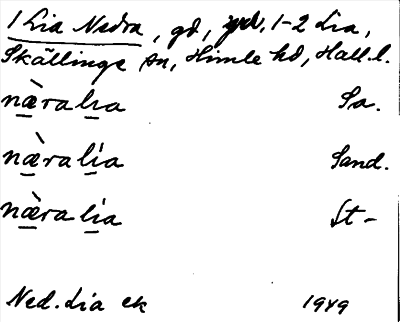 1 Lia Nedra, gd, 1-2 Lia,
Skällinge sn, Himle hd, Hall. l.
næ̀ralia Sa.
næ̀ralía Sand.
næ̀ralía St-
Ned. Lia ek 1949